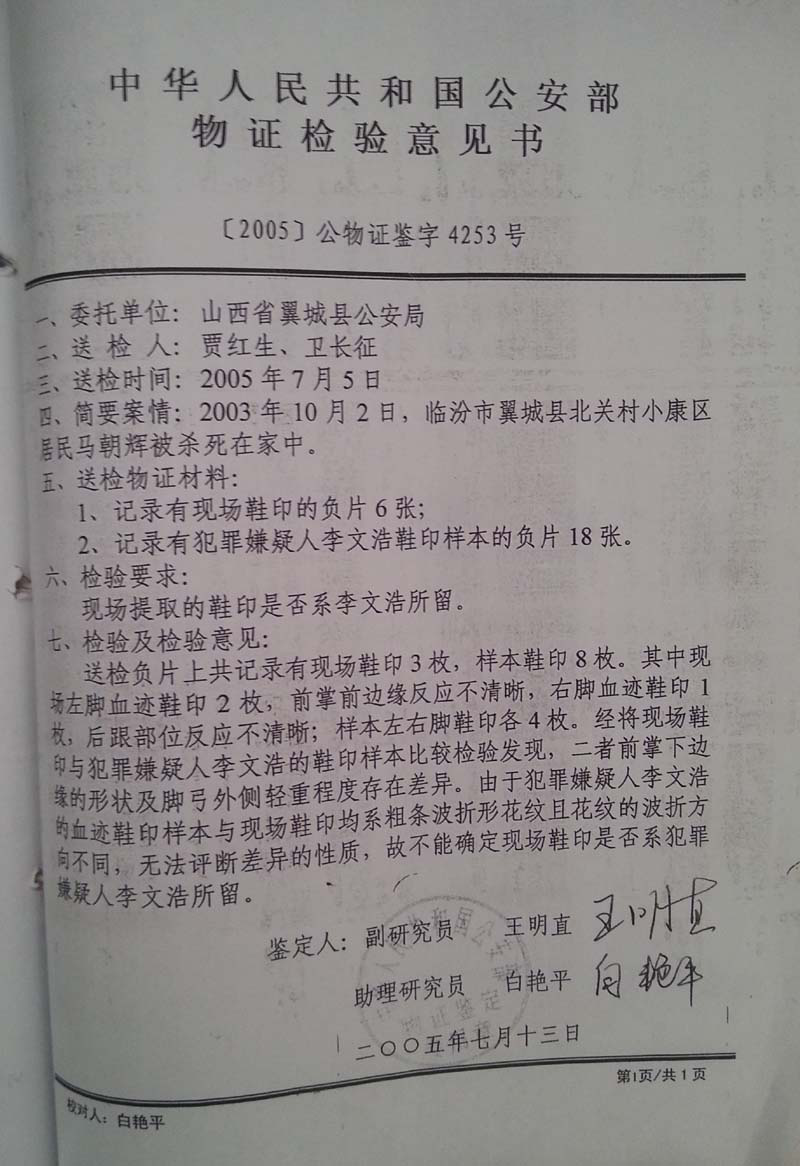 中华人民共和国公安部
物证检验意见书
〔2005〕公物证鉴字 4253 号
一、委托单位：山西省翼城县公安局
二、送 检 人：贾红生、卫长征
三、送检时间：2005 年 7 月 5 日
四、简要案情：2003 年 10 月 2 日，临汾市翼城县北关村小康区
居民马朝辉被杀死在家中。
五、送检物证材料：
1、记录有现场鞋印的负片 6 张；
2、记录有犯罪嫌疑人李文浩鞋印样本的负片 18 张。
六、检验要求：
现场提取的鞋印是否系李文浩所留。
七、检验及检验意见：
送检负片上共记录有现场鞋印 3 枚，样本鞋印 8 枚。其中现
场左脚血迹鞋印 2 枚，前掌前边缘反应不清晰，右脚血迹鞋印 1
枚，后跟部位反应不清晰；样本左右脚鞋印各 4 枚。经将现场鞋
印与犯罪嫌疑人李文浩的鞋印样本比较检验发现，二者前掌下边
缘的形状及脚弓外侧轻重程度存在差异。由于犯罪嫌疑人李文浩
的血迹鞋印样本与现场鞋印均系粗条波折形花纹且花纹的波折方
向不同，无法评断差异的性质，故不能确定现场鞋印是否系犯罪
嫌疑人李文浩所留。
鉴定人：副研究员 王明直 王明直
助理研究员 白艳平 白艳平
二〇〇五年七月十三日
第1页/共 1 页
校对人：白艳平